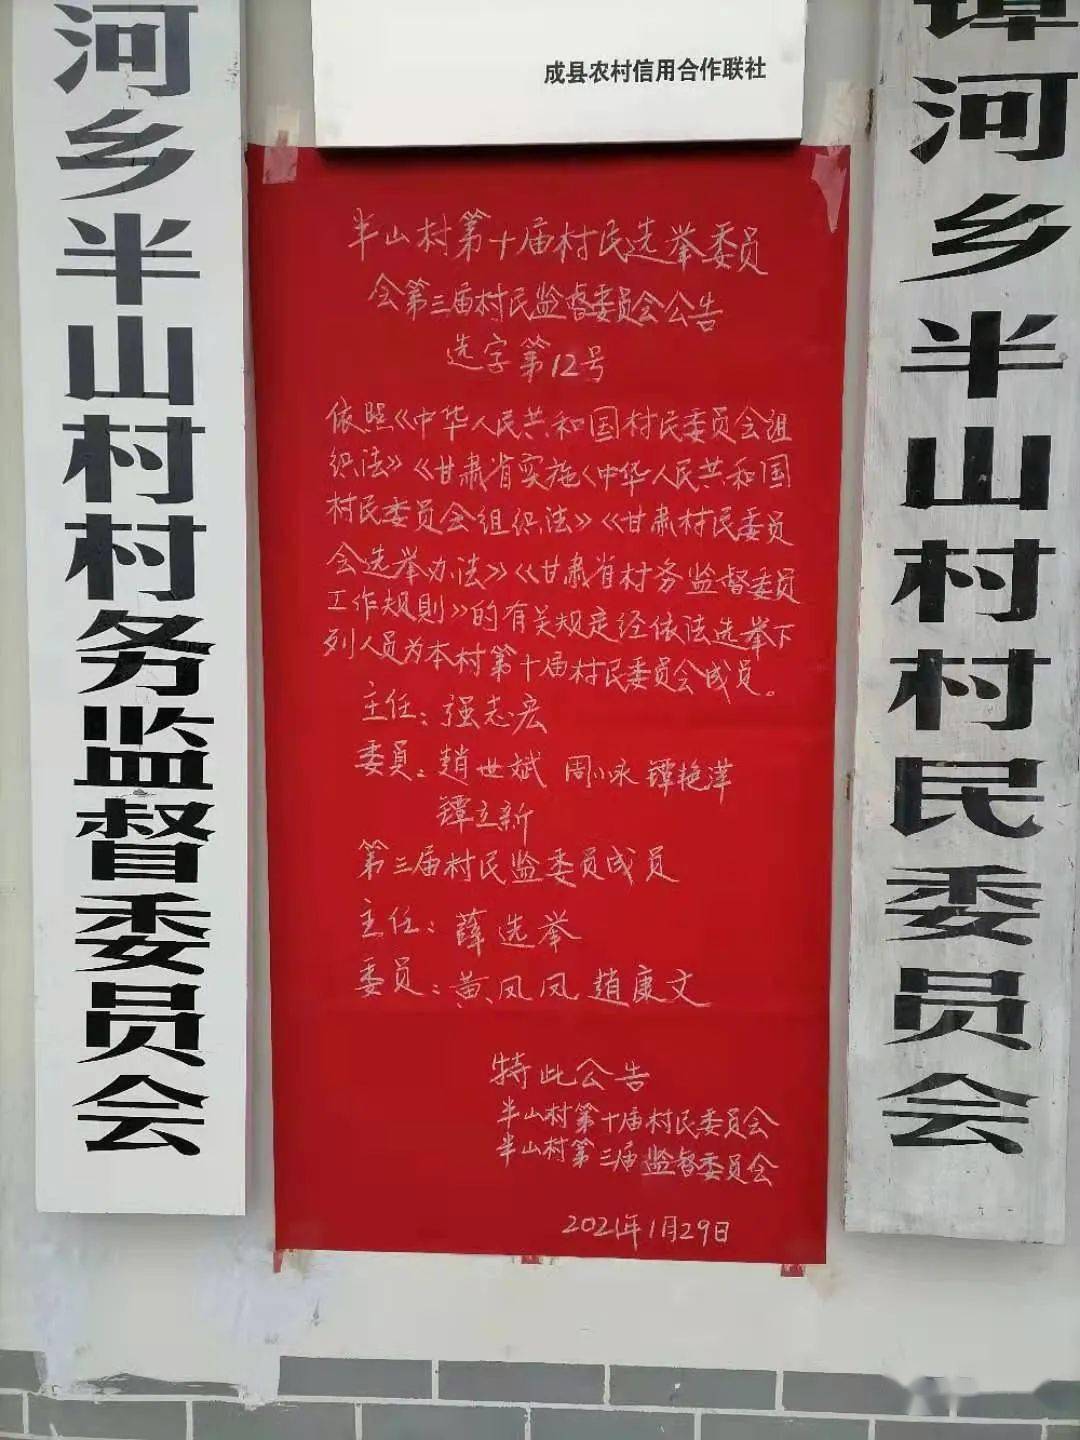 成县农村信用合作联社
河乡半山村村务监督委员会
半山村第十届村民选举委员
会第三届村民监督委员会公告
选字第12号
依照《中华人民共和国村民委员会组
织法》《甘肃省实施〈中华人民共和国
村民委员会组织法》《甘肃村民委员
会选举办法》《甘肃省村务监督委员
工作规则》的有关规定经依法选举下
列人员为本村第十届村民委员会成员。
主任：强志宏
委员：趙世斌 周小咏 镡艳萍
镡立新
第三届村民监委员成员
主任：薛选举
委员：黄凤凤 趙康文
特此公告
半山村第十届村民委员会
半山村第三届监督委员会
2021年1月29日
镡河乡半山村村民委员会